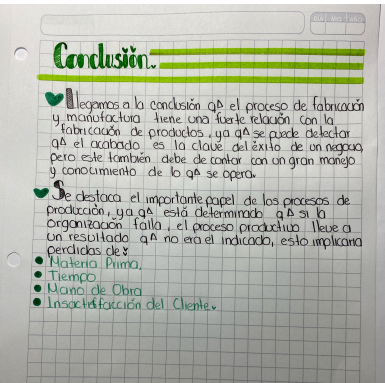 DIA MES AÑO
Conclusión.
Llegamos a la conclusión q^ el proceso de fabricación
y manufactura tiene una fuerte relación con la
fabricación de productos, ya q^ se puede detectar
q^ el acabado es la clave del éxito de un negocio,
pero este también debe de contar con un gran manejo
y conocimiento de lo q^ se opera.
Se destaca el importante papel de los procesos de
producción, ya q^ está determinado q^ si la
organización falla, el proceso productivo lleve a
un resultado q^ no era el indicado, esto implicaría
perdidas de:
• Materia Prima.
• Tiempo
• Mano de Obra
• Insactisfacción del Cliente.